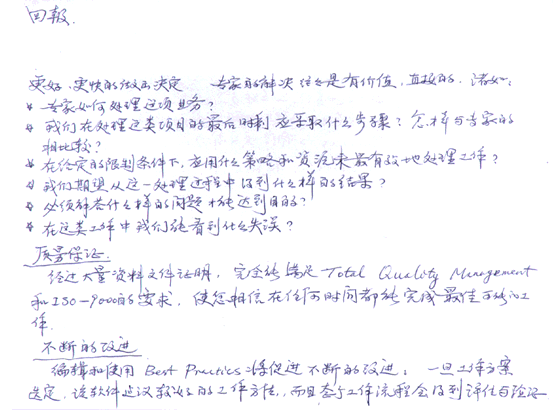 回报.
更好、更快的做出决定 专家的解决往往是有价值,直接的. 诸如:
* 专家如何处理这项业务?
* 我们在处理这类项目的最后时刻应采取什么步骤?怎样与专家的
相比较?
* 在给定的限制条件下,应用什么策略和资源来最有效地处理工作?
* 我们期望从这一处理过程中得到什么样的结果?
* 必须解答什么样的问题才能达到目的?
* 在这类工作中我们能看到什么失误?
质量保证.
经过大量资料文件证明,完全能满足 Total Quality Management
和ISO-9000的要求,使您相信在任何时间都能完成最佳可能的工
作.
不断的改进
编辑和使用 Best Practices 将促进不断的改进:一旦工作方案
选定,该软件建议较好的工作方法,而且参与工作流程会得到评估与验证